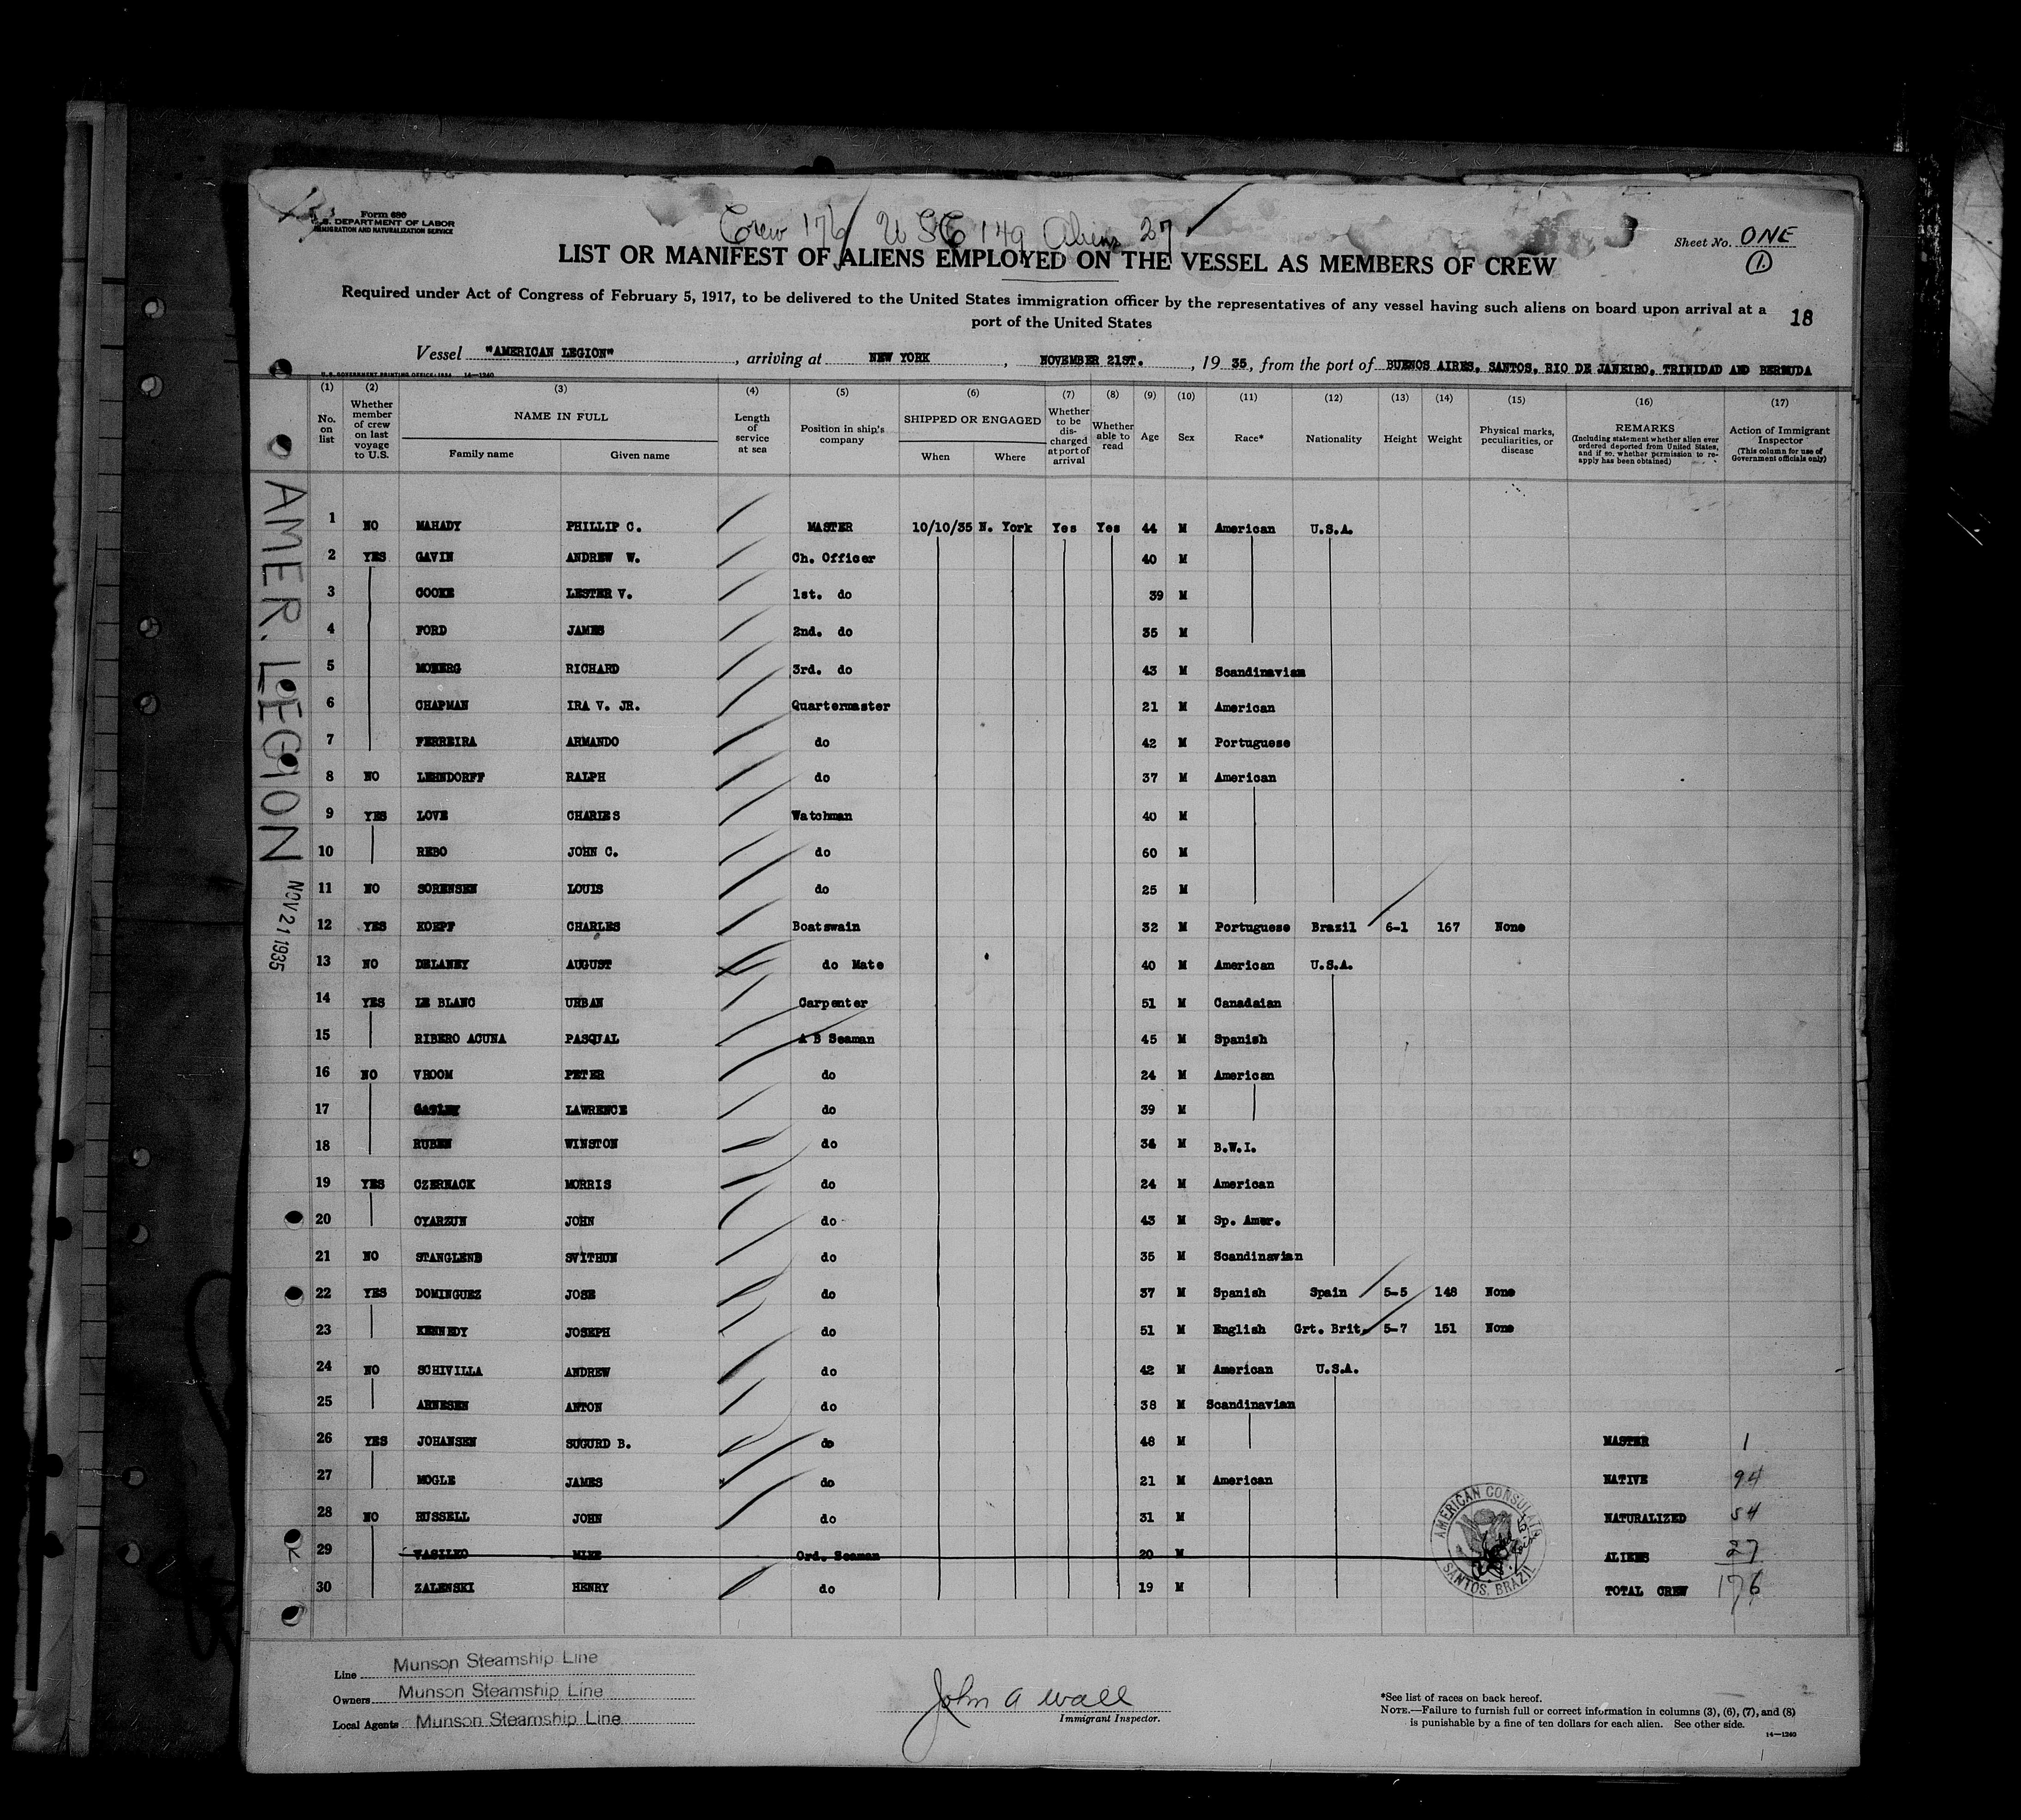 Form 680
U.S. DEPARTMENT OF LABOR
IMMIGRATION AND NATURALIZATION SERVICE
Crew 176 U S C 149 Aliens 27
Sheet No. ONE
1
LIST OR MANIFEST OF ALIENS EMPLOYED ON THE VESSEL AS MEMBERS OF CREW
Required under Act of Congress of February 5, 1917, to be delivered to the United States immigration officer by the representatives of any vessel having such aliens on board upon arrival at a
port of the United States
18
Vessel "AMERICAN LEGION", arriving at NEW YORK, NOVEMBER 21ST., 19 35, from the port of BUENOS AIRES, SANTOS, RIO DE JANEIRO, TRINIDAD AND BERMUDA
U.S. GOVERNMENT PRINTING OFFICE: 1934 14—1240
(1) (2) (3) (4) (5) (6) (7) (8) (9) (10) (11) (12) (13) (14) (15) (16) (17)
No. on list
Whether member of crew on last voyage to U.S.
NAME IN FULL
Family name Given name
Length of service at sea
Position in ship's company
SHIPPED OR ENGAGED
When Where
Whether to be discharged at port of arrival
Whether able to read
Age
Sex
Race*
Nationality
Height
Weight
Physical marks, peculiarities, or disease
REMARKS
(Including statement whether alien ever ordered deported from United States, and if so, whether permission to re-apply has been obtained)
Action of Immigrant Inspector
(This column for use of Government officials only)
AMER. LEGION
NOV 21 1935
1 NO MAHADY PHILLIP C. MASTER 10/10/35 N. York Yes Yes 44 M American U.S.A.
2 YES GAVIN ANDREW W. Ch. Officer 40 M
3 COOKE LESTER V. 1st. do 39 M
4 FORD JAMES 2nd. do 35 M
5 MOBERG RICHARD 3rd. do 43 M Scandinavian
6 CHAPMAN IRA V. JR. Quartermaster 21 M American
7 FERREIRA ARMANDO do 42 M Portuguese
8 NO LEHNDORFF RALPH do 37 M American
9 YES LOVE CHARLES Watchman 40 M
10 REBO JOHN C. do 60 M
11 NO SORENSEN LOUIS do 25 M
12 YES KOEPF CHARLES Boatswain 32 M Portuguese Brazil 6-1 167 None
13 NO DELANEY AUGUST do Mate 40 M American U.S.A.
14 YES LE BLANC URBAN Carpenter 51 M Canadaian
15 RIBERO ACUNA PASQUAL A B Seaman 45 M Spanish
16 NO VROOM PETER do 24 M American
17 GASLEY LAWRENCE do 39 M
18 RUBEN WINSTON do 34 M B.W.I.
19 YES CZERNACK MORRIS do 24 M American
20 OYARZUN JOHN do 43 M Sp. Amer.
21 NO STANGLEND SVITHUN do 35 M Scandinavian
22 YES DOMINGUEZ JOSE do 37 M Spanish Spain 5-5 148 None
23 KENNEDY JOSEPH do 51 M English Grt. Brit. 5-7 151 None
24 NO SCHIVILLA ANDREW do 42 M American U.S.A.
25 ARNESEN ANTON do 38 M Scandinavian
26 YES JOHANSEN SUGURD B. do 48 M MASTER 1
27 MOGLE JAMES do 21 M American NATIVE 94
28 NO RUSSELL JOHN do 31 M NATURALIZED 54
29 VASILKO MIKE Ord. Seaman 20 M ALIENS 27
30 ZALENSKI HENRY do 19 M TOTAL CREW 176
AMERICAN CONSULATE
SANTOS, BRAZIL
Line Munson Steamship Line
Owners Munson Steamship Line
Local Agents Munson Steamship Line
John A Wall
Immigrant Inspector.
*See list of races on back hereof.
NOTE.—Failure to furnish full or correct information in columns (3), (6), (7), and (8)
is punishable by a fine of ten dollars for each alien. See other side.
14—1240